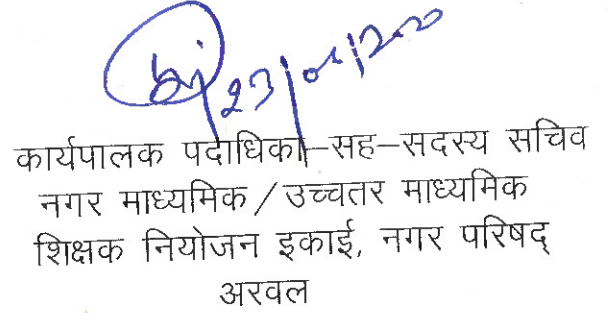 कार्यपालक पदाधिका–सह–सदस्य सचिव
नगर माध्यमिक / उच्चतर माध्यमिक
शिक्षक नियोजन इकाई, नगर परिषद्
अरवल